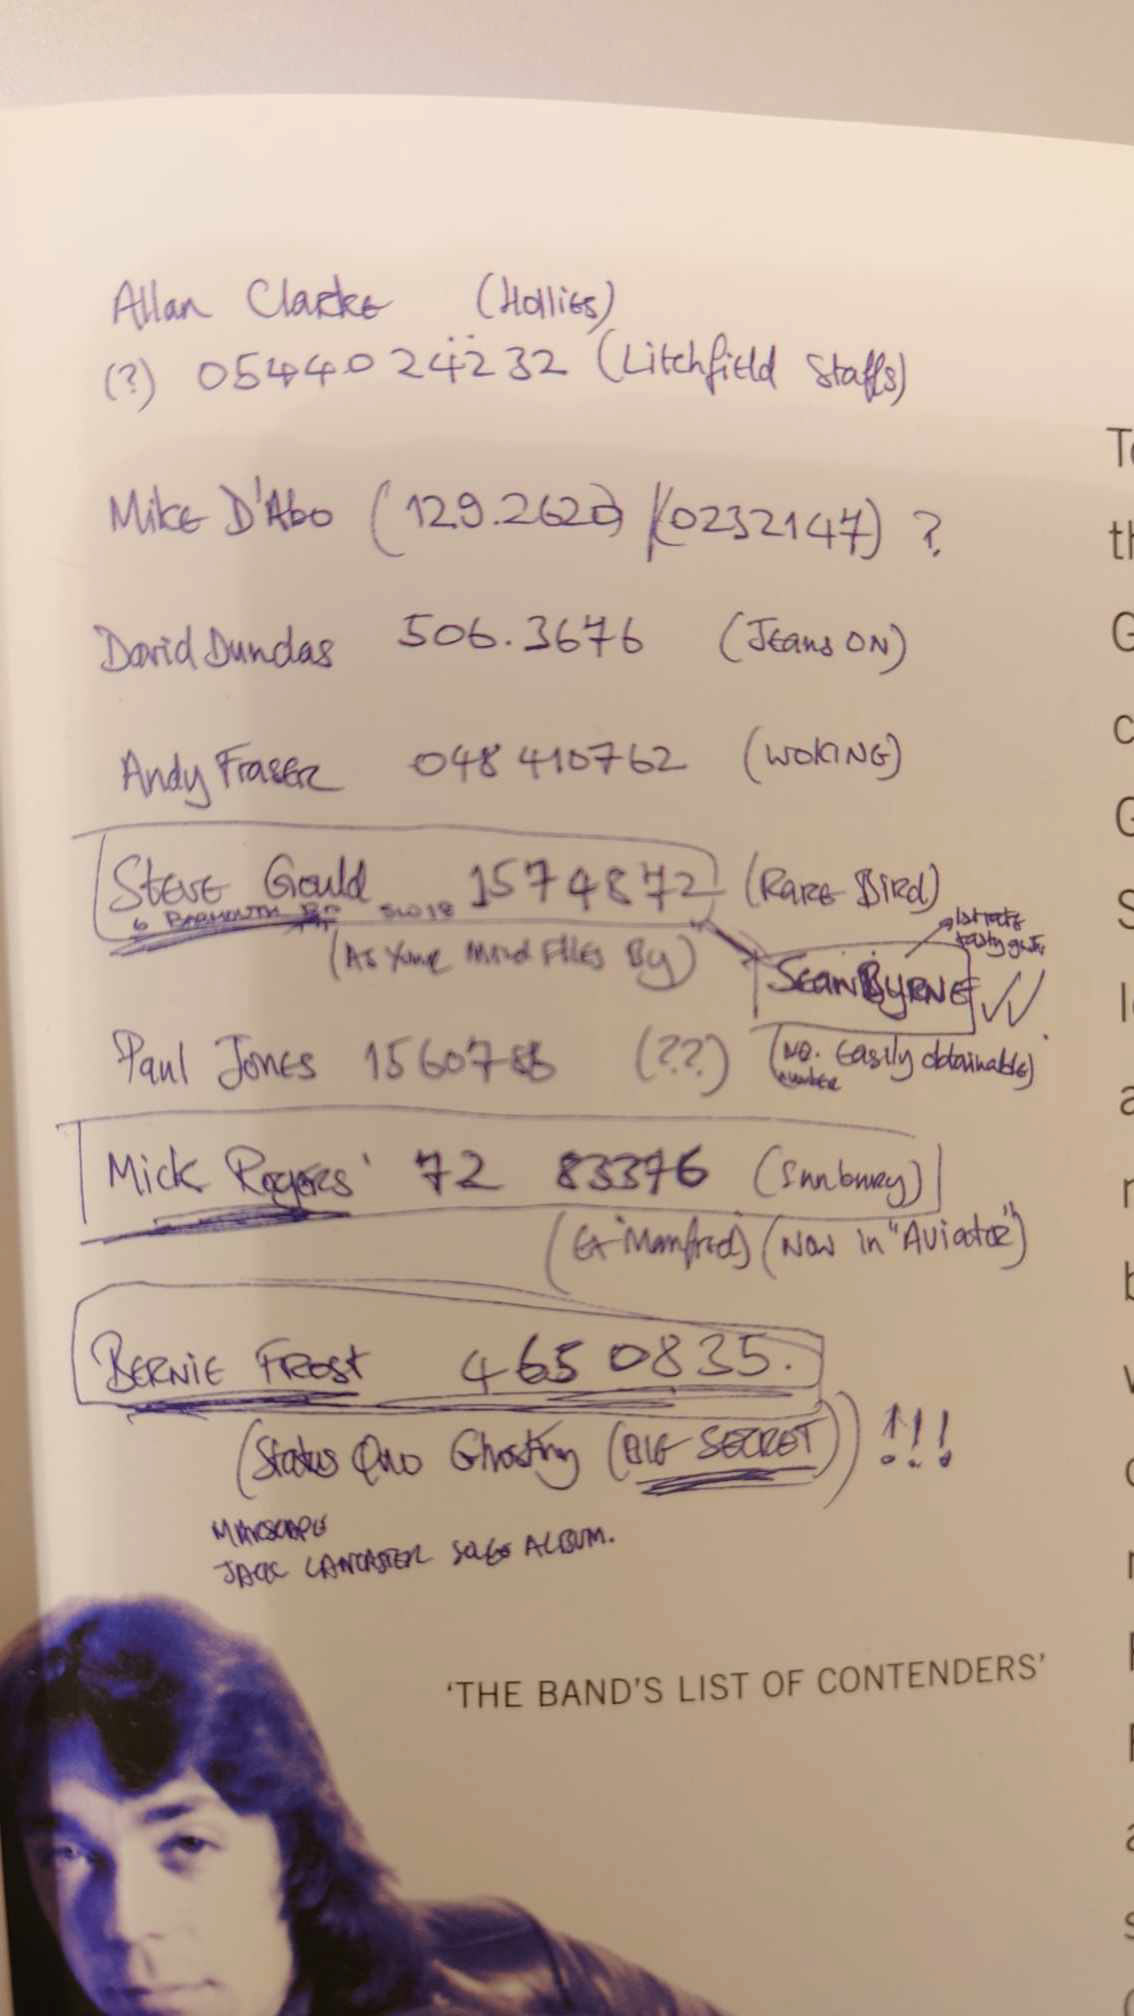 Allan Clarke (Hollies)
(?) 05440 24232 (Litchfield Staffs)
Mike D'Abo (129.2620) (0232147) ?
David Dundas 506.3676 (Jeans ON)
Andy Fraser 048 410762 (WOKING)
Steve Gould 1574872 (Rare Bird)
6 BARMOUTH RD SW18
(As Your Mind Flies By)
Sean BYRNE
Paul Jones 15607 (??)
(NO. Easily obtainable)
number
Mick Rogers 72 83376 (Sunbury)
(Ex Manfred) (Now in "Aviator")
BERNIE FROST 465 0835.
(Status Quo Ghosting (BIG SECRET)) !!!
MARSCAPE
JACK LANCASTER SOLO ALBUM.
'THE BAND'S LIST OF CONTENDERS'